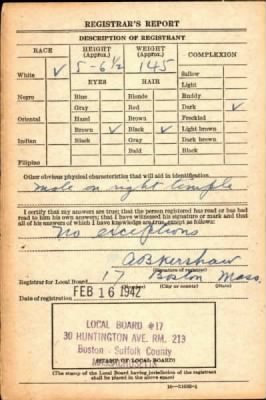 REGISTRAR'S REPORT
DESCRIPTION OF REGISTRANT
RACE HEIGHT (Approx.) WEIGHT (Approx.) COMPLEXION
White ✓ 5-6½ 145 Sallow
EYES HAIR Light
Negro Blue Blonde Ruddy
Gray Red Dark ✓
Oriental Hazel Brown Freckled
Brown ✓ Black ✓ Light brown
Indian Black Gray Dark brown
Bald Black
Filipino
Other obvious physical characteristics that will aid in identification
Mole on right temple
I certify that my answers are true; that the person registered has read or has had
read to him his own answers; that I have witnessed his signature or mark and that
all of his answers of which I have knowledge are true, except as follows:
No exceptions
(Signature of registrar)
Registrar for Local Board 17 Boston Mass.
(Number) (City or county) (State)
Date of registration FEB 16 1942
LOCAL BOARD #17
30 HUNTINGTON AVE. RM. 213
Boston - Suffolk County
MASSACHUSETTS
(STAMP OF LOCAL BOARD)
(The stamp of the Local Board having jurisdiction of the registrant
shall be placed in the above space.)